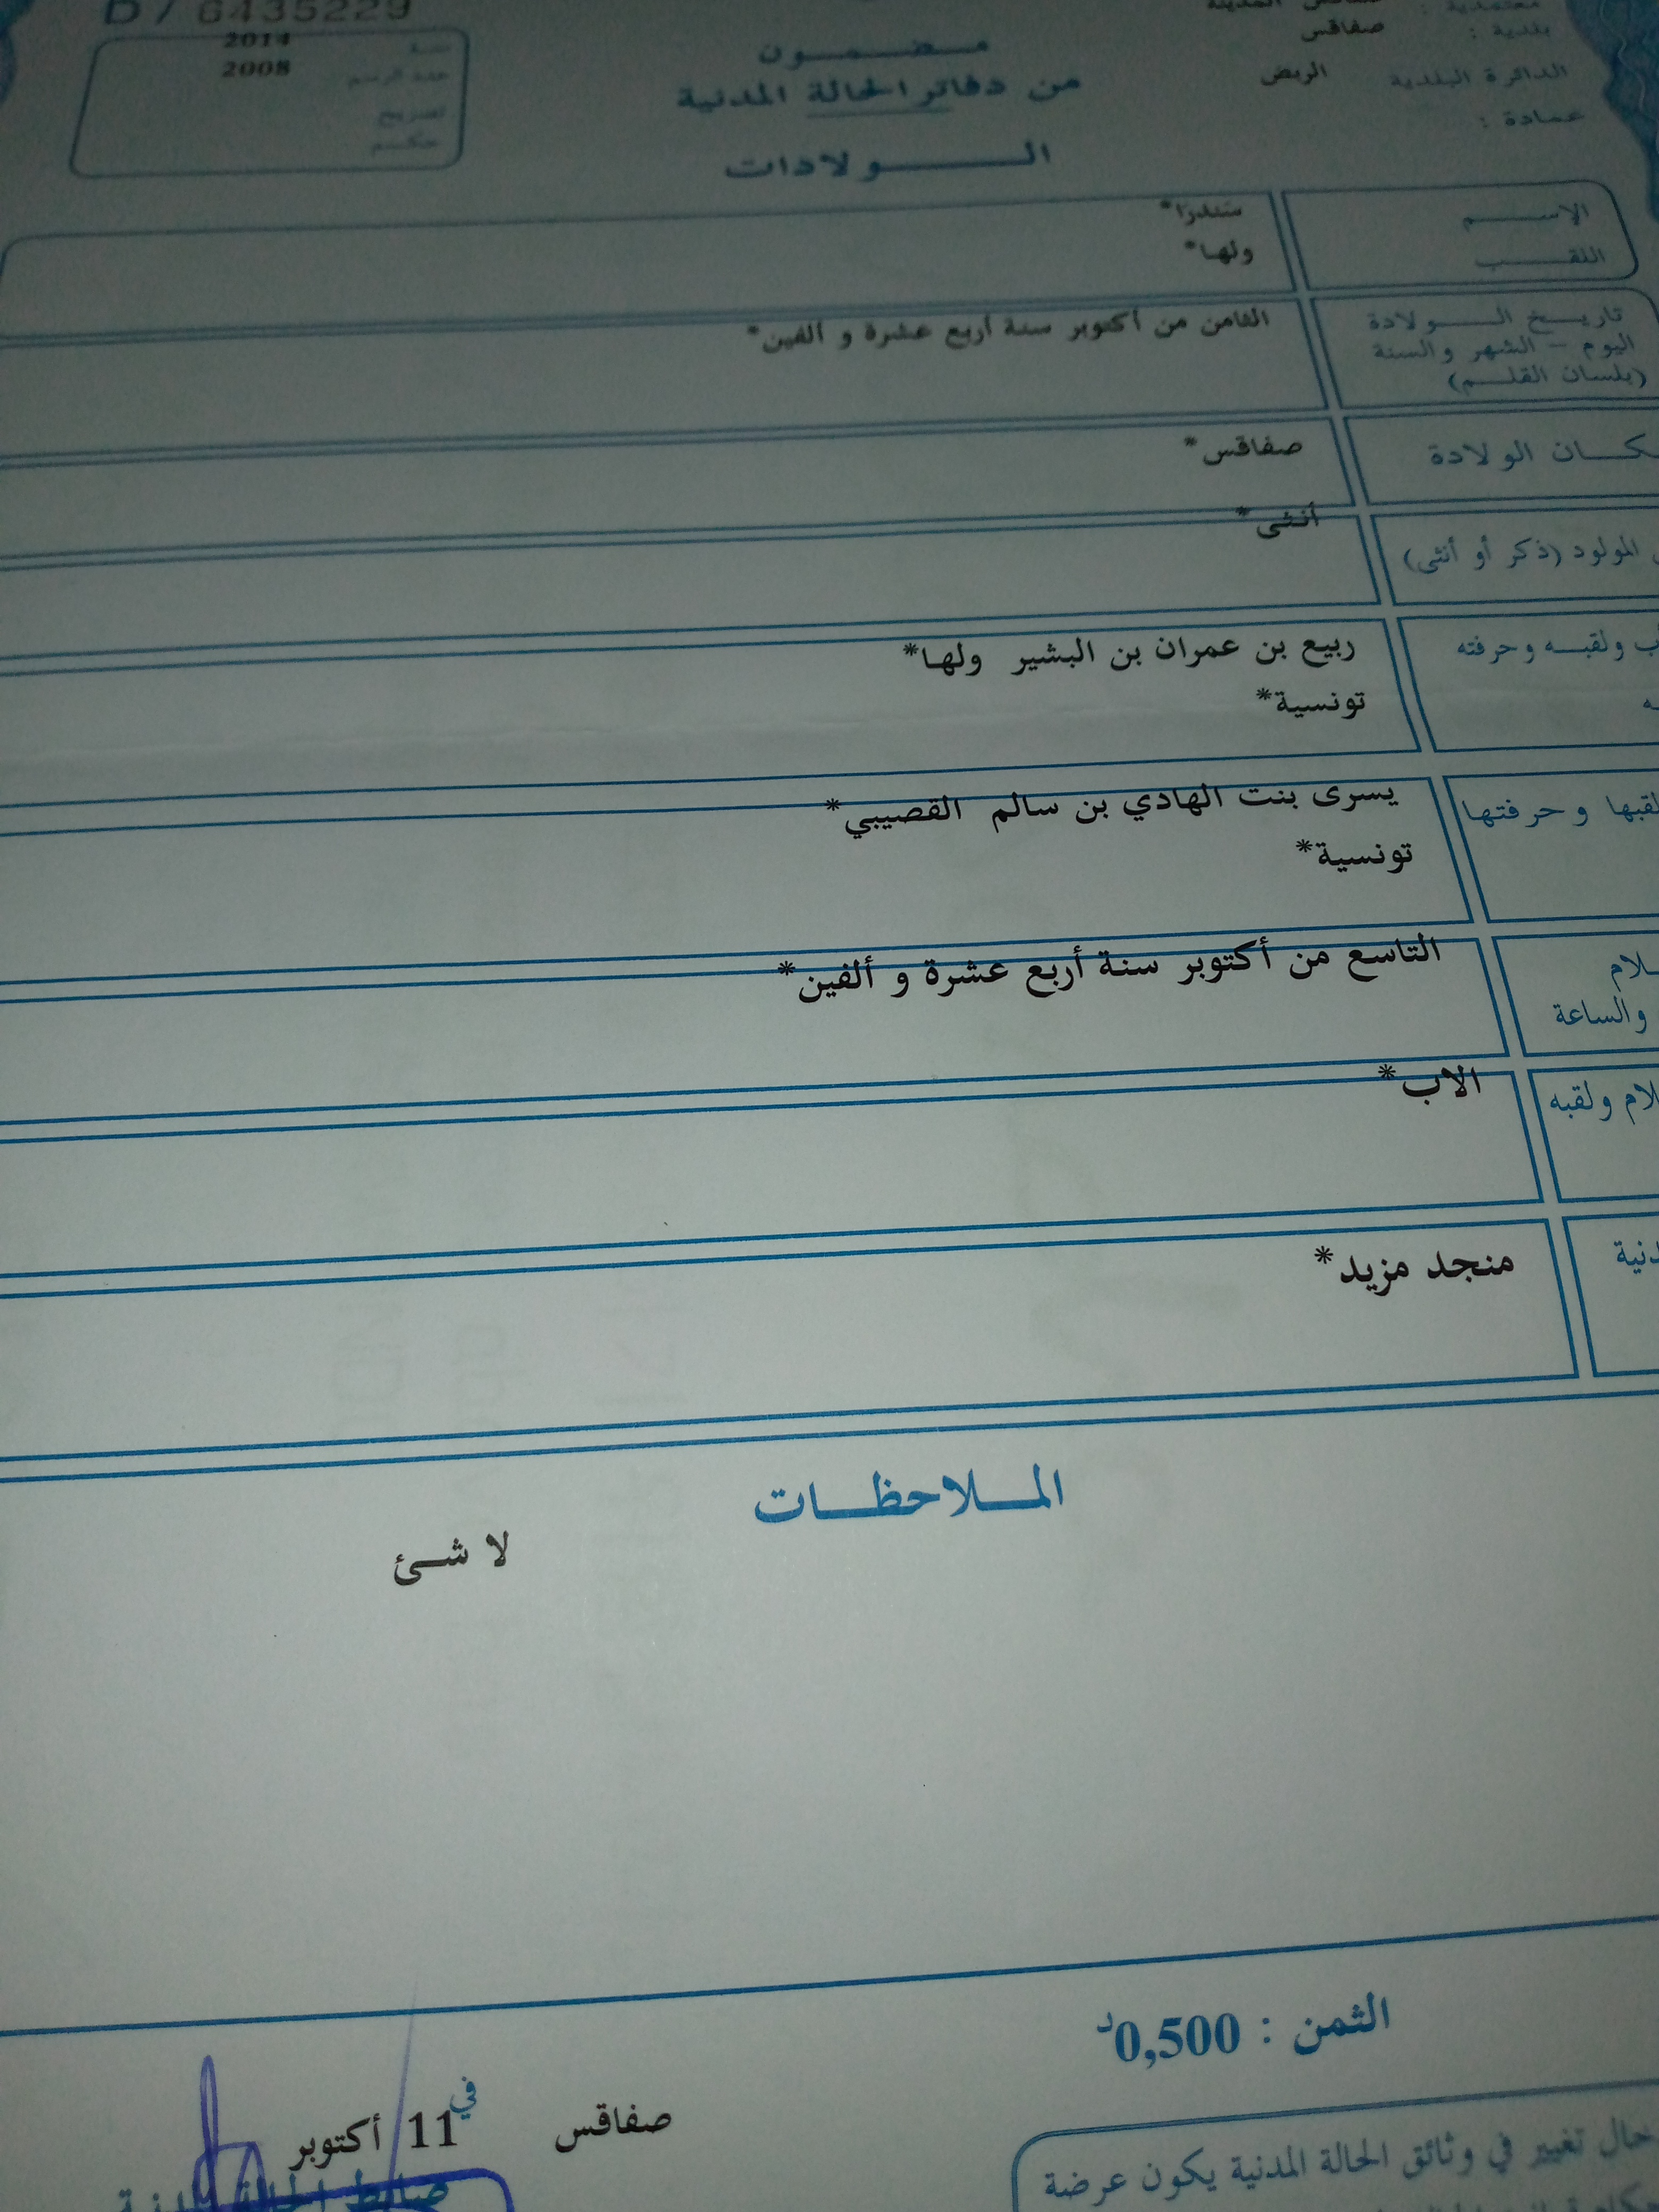 D / 6435229
معتمدية : صفاقس المدينة
بلدية : صفاقس
الدائرة البلدية الربض
عمادة :
سنة 2014
عدد الرسم 2008
تصريح
حكم
مضمون
من دفاتر الحالة المدنية
الولادات
الاسم سندرا*
اللقب ولها*
تاريخ الولادة الثامن من أكتوبر سنة أربع عشرة و ألفين*
اليوم - الشهر والسنة
(بلسان القلم)
كان الولادة صفاقس*
المولود (ذكر أو أنثى) أنثى*
ب ولقبه وحرفته ربيع بن عمران بن البشير ولها*
ـه تونسية*
لقبها و حرفتها يسرى بنت الهادي بن سالم القصيبي*
تونسية*
ـلام التاسع من أكتوبر سنة أربع عشرة و ألفين*
والساعة
لام ولقبه الاب*
دنية منجد مزيد*
الملاحظات
لا شئ
الثمن : 0,500د
صفاقس في 11 أكتوبر
ضابط الحالة المدنية
حال تغيير في وثائق الحالة المدنية يكون عرضة